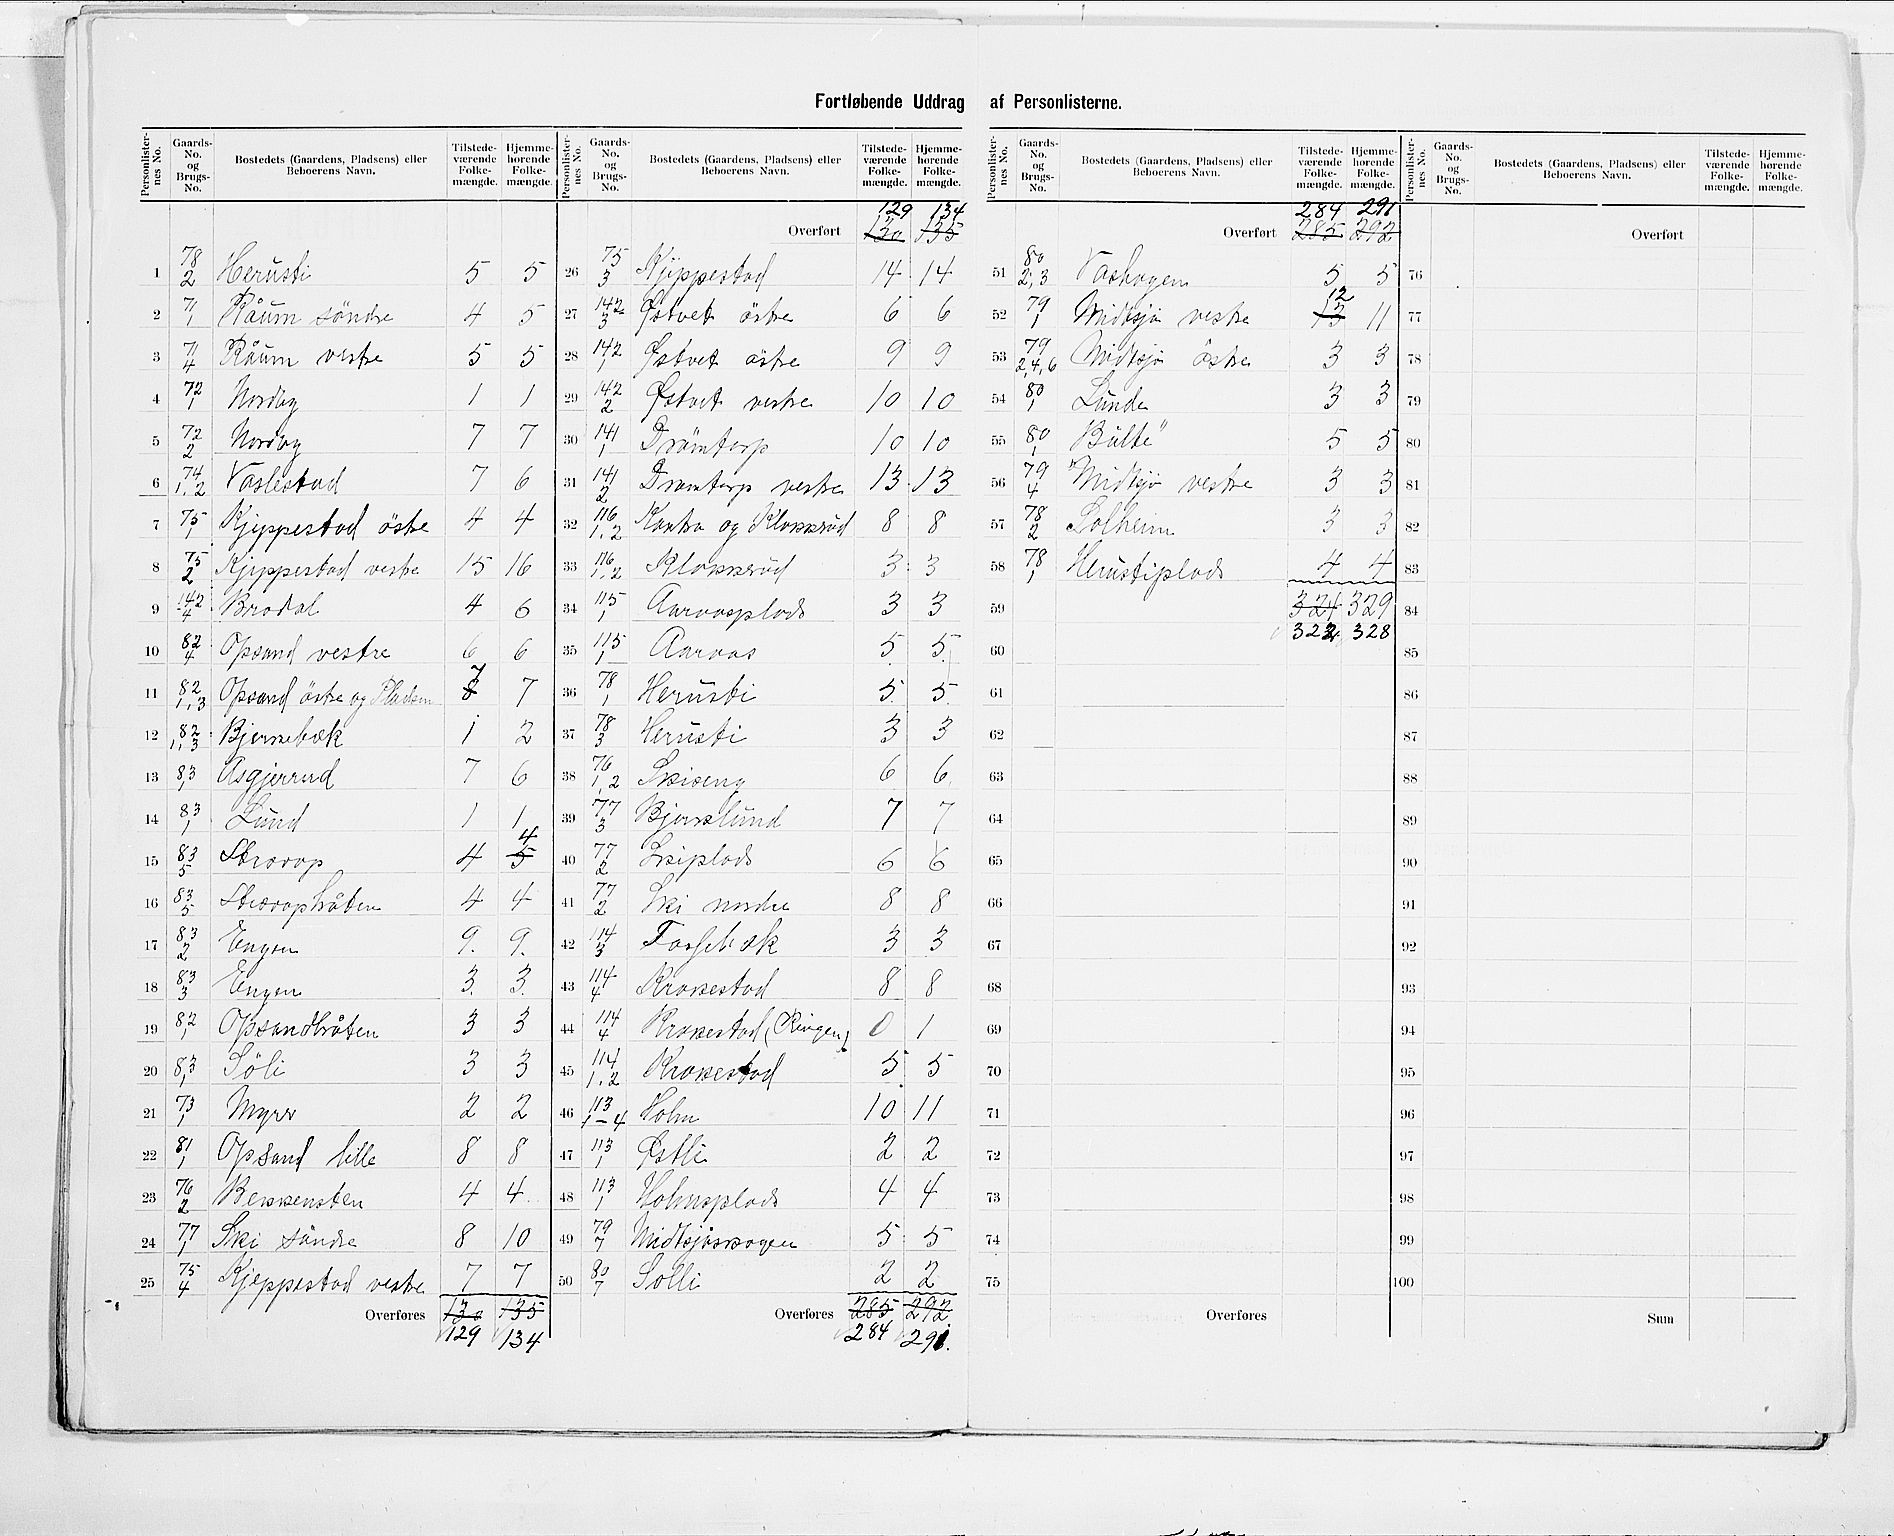 Fortløbende Uddrag af Personlisterne.
Personlister-nes No. | Gaards-No. og Brugs-No. | Bostedets (Gaardens, Pladsens) eller Beboerens Navn. | Tilstede-værende Folke-mængde. | Hjemme-hørende Folke-mængde.
1 78/2 Herusti 5 5
2 71/1 Råum söndre 4 5
3 71/4 Råum vestre 5 5
4 72/1 Nordby 1 1
5 72/2 Nordby 7 7
6 74/1,2 Vaslestad 7 6
7 75/1 Kjeppestad östre 4 4
8 75/2 Kjeppestad vestre 15 16
9 142/4 Brodal 4 6
10 82/4 Opsand vestre 6 6
11 82/1,3 Opsand östre og Pladsen 8 7 7
12 82/1,3 Bjernebæk 1 2
13 83/1 Asgjerrud 7 6
14 83/1 Lund 1 1
15 83/5 Strorop 4 5 4
16 83/5 Stroropbråten 4 4
17 83/2 Engen 9. 9.
18 83/3 Engen 3. 3.
19 82/1 Opsandbråten 3 3
20 83/1 Söli 3 3
21 73/1 Myrer 2 2
22 81/1 Opsand lille 8 8
23 76/2 Bekkensten 4 4
24 77/1 Ski söndre 8 10
25 75/4 Kjeppestad vestre 7 7
Overføres 130 135
129 134
Personlister-nes No. | Gaards-No. og Brugs-No. | Bostedets (Gaardens, Pladsens) eller Beboerens Navn. | Tilstede-værende Folke-mængde. | Hjemme-hørende Folke-mængde.
129 134
Overført 130 135
26 75/3 Kjeppestad 14 14
27 142/3 Østvet östre 6 6
28 142/1 Østvet östre 9 9
29 142/2 Østvet vestre 10 10
30 141/1 Drömtorp 10 10
31 141/2 Drömtorp vestre 13 13
32 116/1,2 Kontra og Klokkerud 8 8
33 116/1,2 Klokkerud 3 3
34 115/1 Aaraasplads 3 3
35 115/1 Aaraas 5. 5.
36 78/1 Herusti 5. 5.
37 78/3 Herusti 3 3
38 76/1,2 Skiseng 6 6
39 77/3 Bjerklund 7 7
40 77/2 Skiplads 6 6
41 77/2 Ski nordre 8 8
42 114/3 Forfebæk 3 3
43 114/4 Krokestad 8 8
44 114/4 Krokestad (Ringen) 0 1
45 114/1,2 Krokestad 5 5
46 113/1-4 Holm 10 11
47 113/1 Østli 2 2
48 113/1 Holmsplads 4 4
49 79/7 Midtsjöskogen 5 5
50 80/7 Solli 2 2
Overføres 285 292
284 291.
Personlister-nes No. | Gaards-No. og Brugs-No. | Bostedets (Gaardens, Pladsens) eller Beboerens Navn. | Tilstede-værende Folke-mængde. | Hjemme-hørende Folke-mængde.
284 291
Overført 285 292
51 80/2,3 Vashagen 5 5
52 79/1 Midtsjö vestre 13 12 11
53 79/2,4,6 Midtsjö östre 3 3
54 80/1 Lunde 3 3
55 80/1 "Bulte" 5 5
56 79/4 Midtsjö vestre 3 3
57 78/2 Solheim 3 3
58 78/1 Herustiplads 4 4
59 324 329
322 328
60
61
62
63
64
65
66
67
68
69
70
71
72
73
74
75
Overføres
Personlister-nes No. | Gaards-No. og Brugs-No. | Bostedets (Gaardens, Pladsens) eller Beboerens Navn. | Tilstede-værende Folke-mængde. | Hjemme-hørende Folke-mængde.
Overført
76
77
78
79
80
81
82
83
84
85
86
87
88
89
90
91
92
93
94
95
96
97
98
99
100
Sum